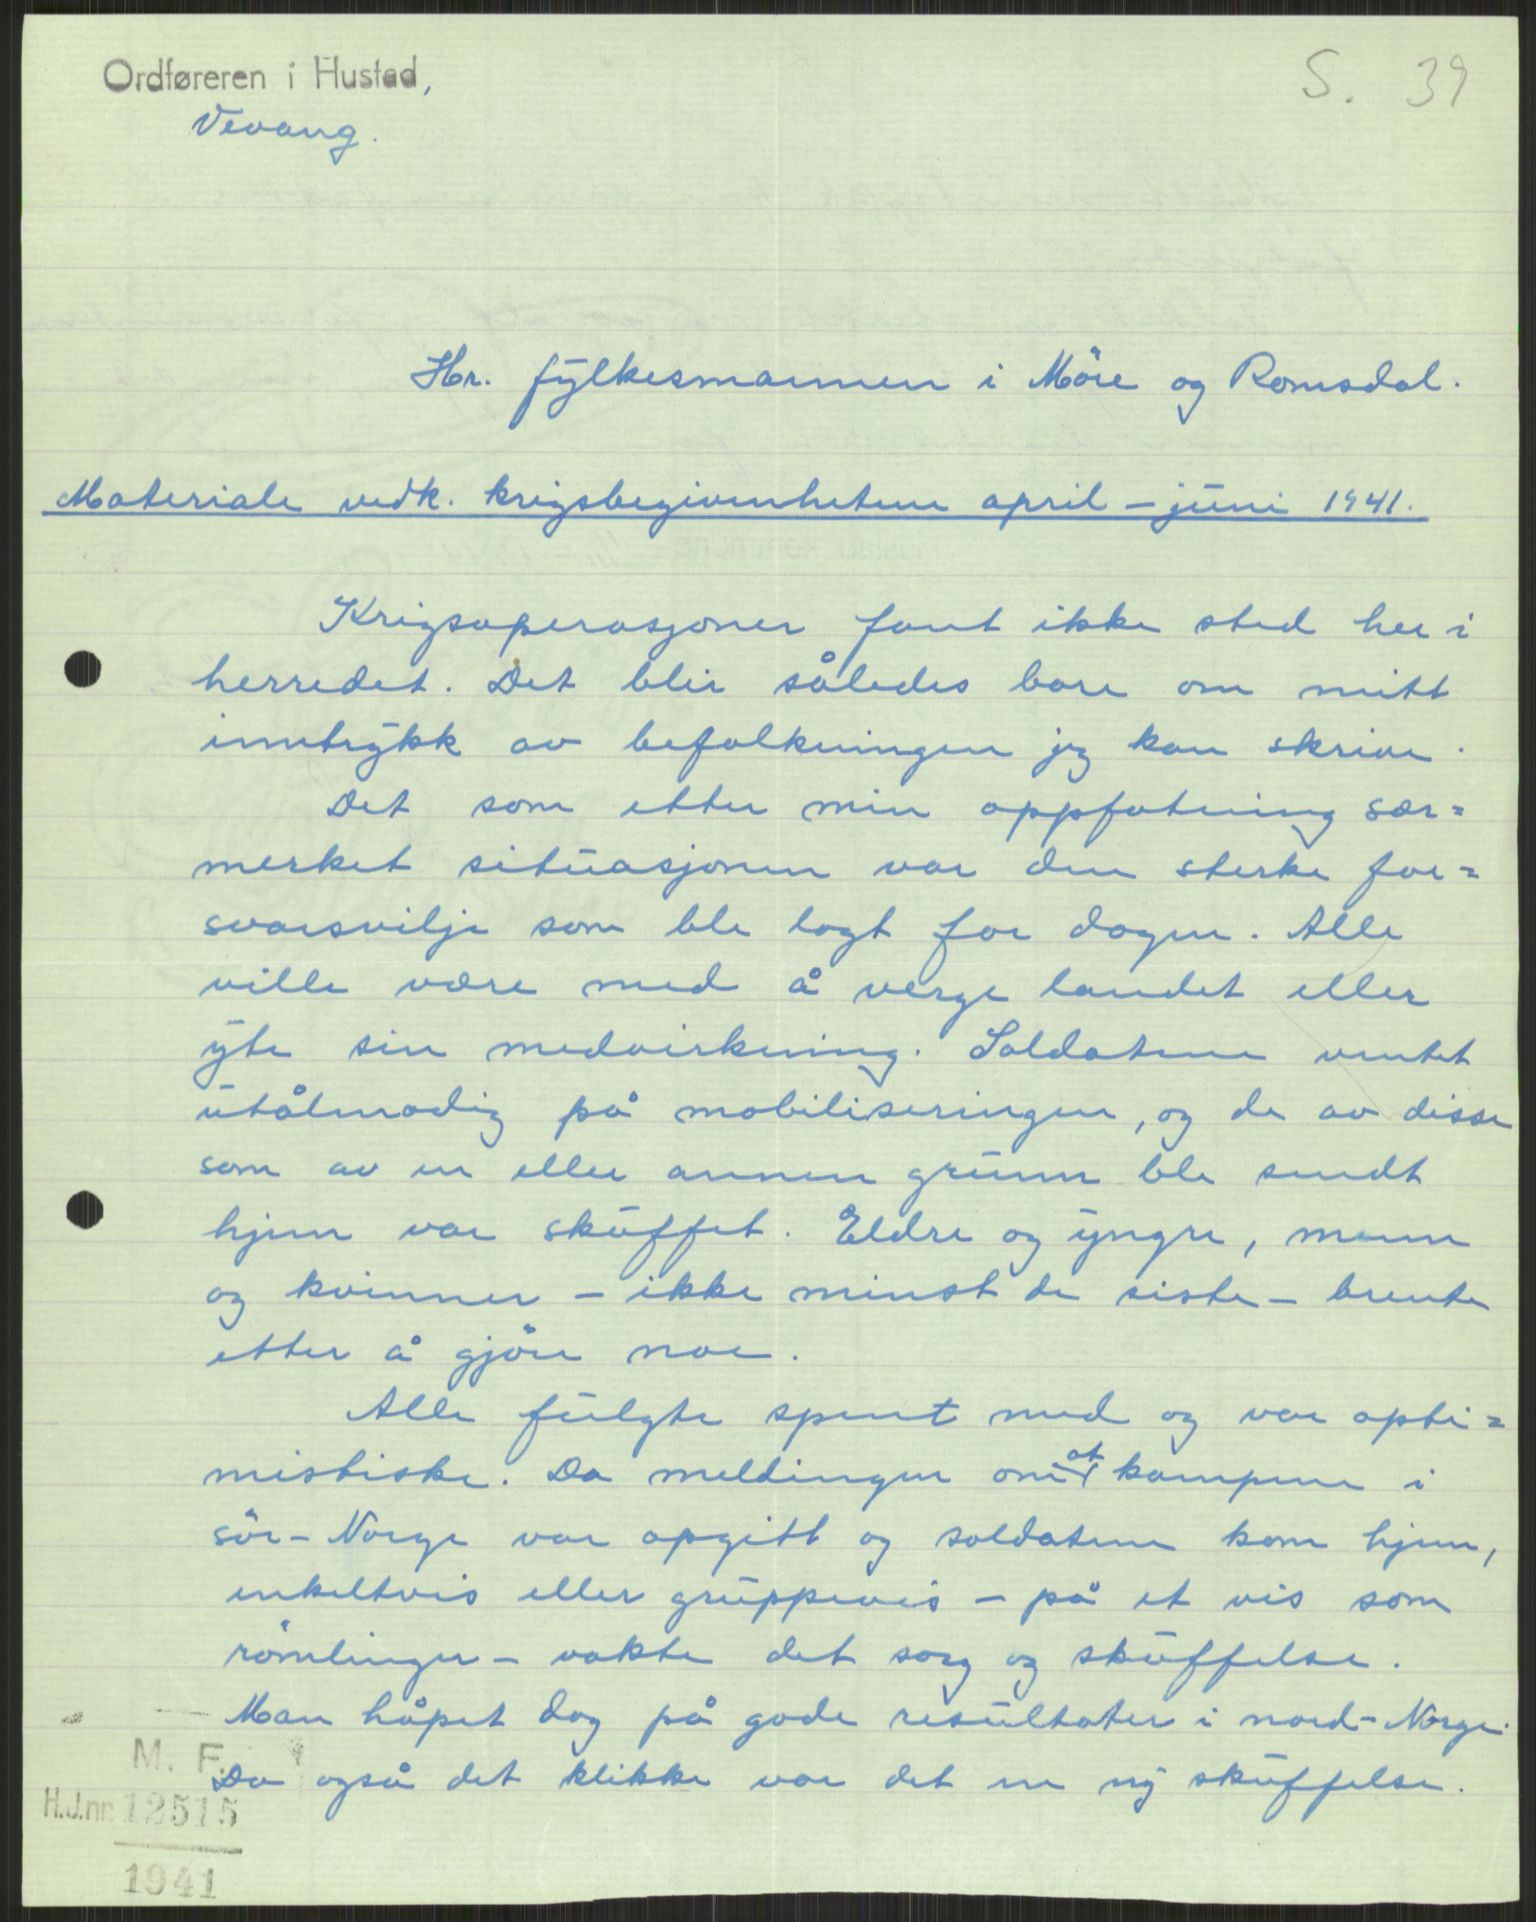 Ordføreren i Hustad,
S. 39
Vevang.
Hr. fylkesmannen i Möre og Romsdal.
Materiale vedk. krigsbegivenhetene april – juni 1941.
Krigsoperasjoner fant ikke sted her i
herredet. Det blir således bare om mitt
inntrykk av befolkningen jeg kan skrive.
Det som etter min oppfatning sær=
merket situasjonen var den sterke for=
svarsvilje som ble lagt for dagen. Alle
ville være med å verge landet eller
yte sin medvirkning. Soldatene ventet
utålmodig på mobiliseringen, og de av disse
som av en eller annen grunn ble sendt
hjem var skuffet. Eldre og yngre, menn
og kvinner – ikke minst de siste – brente
etter å gjöre noe.
Alle fulgte spent med og var opti=
mistiske. Da meldingen om at kampene i
sör-Norge var opgitt og soldatene kom hjem,
enkeltvis eller gruppevis – på et vis som
römlinger – vakte det sorg og skuffelse.
Man håpet dog på gode resultater i nord-Norge.
Da også det klikke var det en ny skuffelse.
M. F.
H.J.nr. 12515
1941